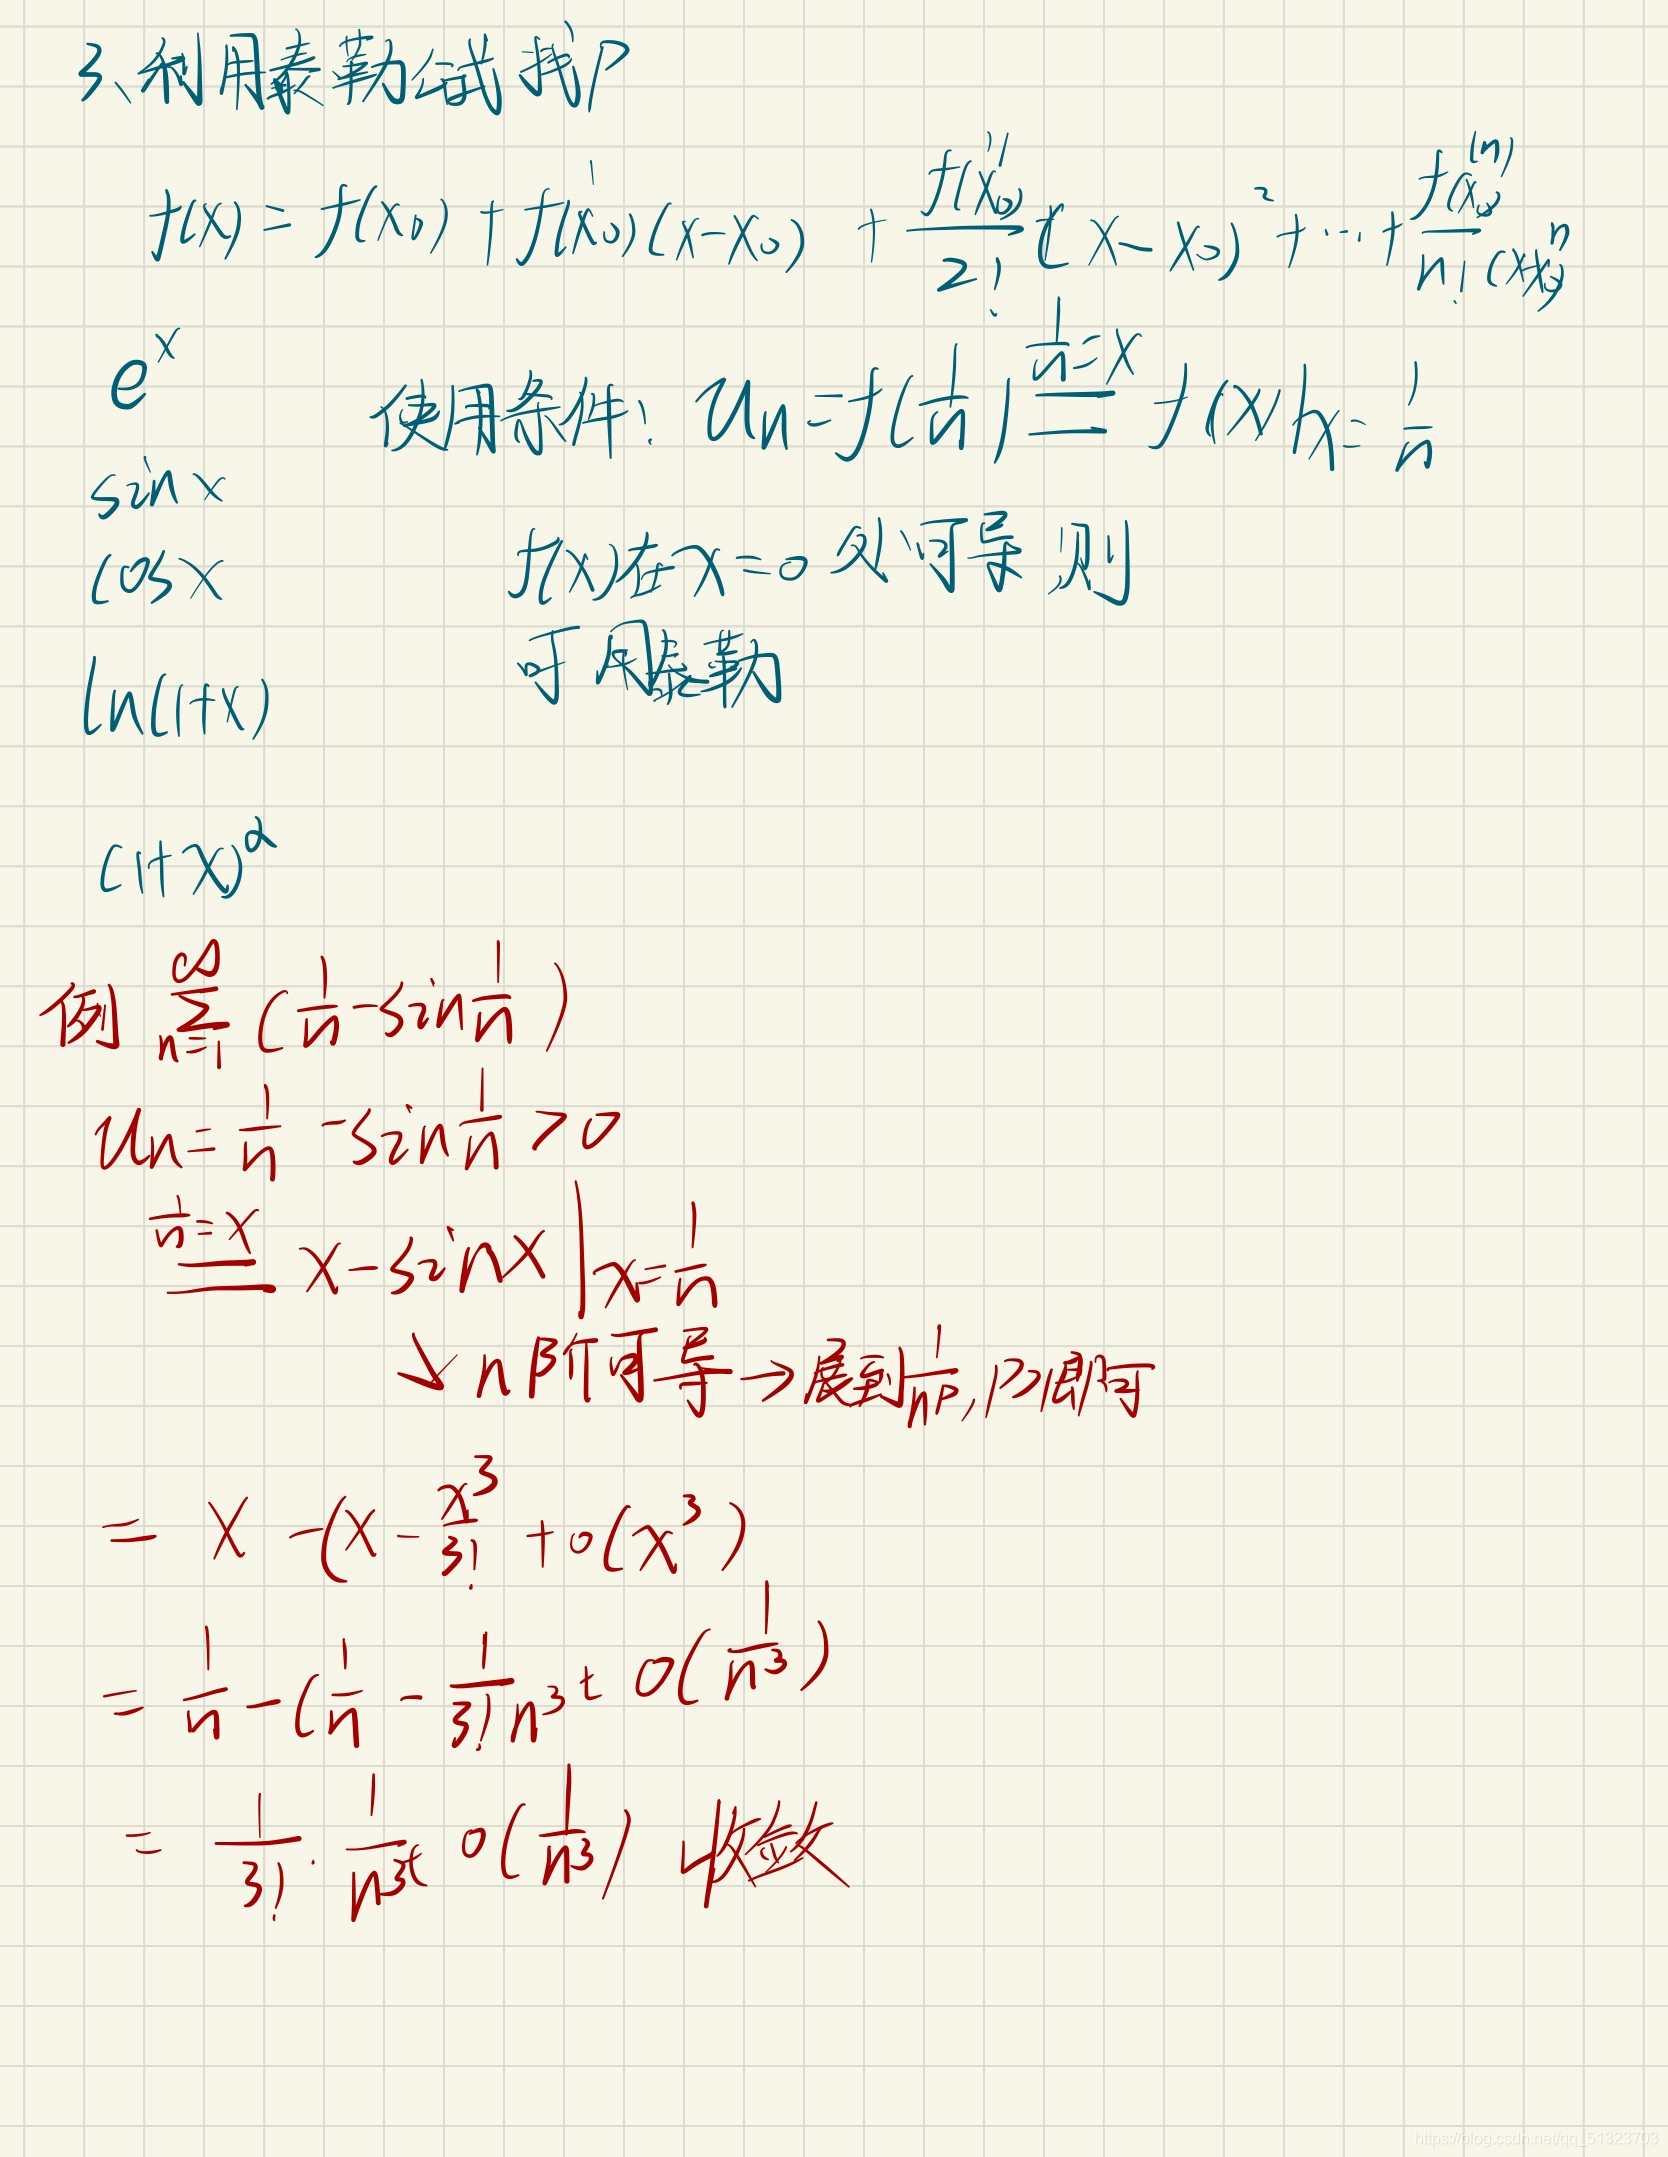 3、利用泰勒公式找P
f(x) = f(x₀) + f(x₀)'(x-x₀) + f(x₀)''/2! (x-x₀)² + ... + f(x₀)⁽ⁿ⁾/n! (x-x₀)ⁿ
eˣ
使用条件: Un = f(1/n) =(1/n=x)= f(x)|x=1/n
sin x
cos x
f(x)在x=0处可导,则
可用泰勒
ln(1+x)
(1+x)^α
例 ∑_{n=1}^{∞} (1/n - sin 1/n)
Un = 1/n - sin 1/n > 0
=(1/n=x)= x - sin x |x=1/n
↘ n阶可导 → 展到 1/n^p, P>1即可
= x - (x - x³/3! + o(x³)
= 1/n - (1/n - 1/3!n³ + o(1/n³)
= 1/3! · 1/n³ + o(1/n³) 收敛
https://blog.csdn.net/qq_51323703